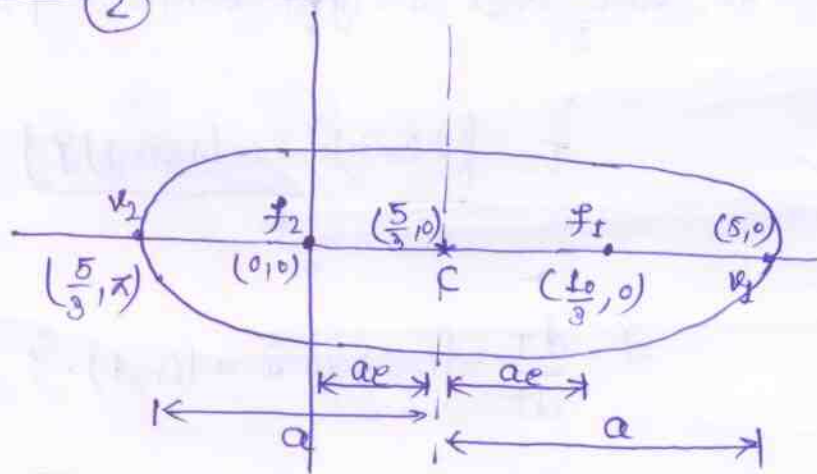 2
v₂ f₂ (5/3, 0) f₁ (5, 0)
(5/3, π) (0, 0) C (10/3, 0) v₁
ae ae
a a